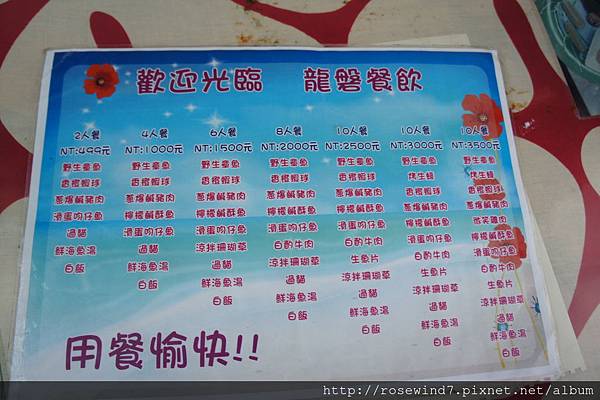 歡迎光臨 龍磐餐飲
2人餐 4人餐 6人餐 8人餐 10人餐 10人餐 10人餐
NT:499元 NT:1000元 NT:1500元 NT:2000元 NT:2500元 NT:3000元 NT:3500元
野生章魚 野生章魚 野生章魚 野生章魚 野生章魚 野生章魚 野生章魚
香橙蝦球 香橙蝦球 香橙蝦球 香橙蝦球 香橙蝦球 烤生蠔 烤生蠔
蔥爆鹹豬肉 蔥爆鹹豬肉 蔥爆鹹豬肉 蔥爆鹹豬肉 蔥爆鹹豬肉 香橙蝦球 香橙蝦球
滑蛋吻仔魚 檸檬鹹酥魚 檸檬鹹酥魚 檸檬鹹酥魚 檸檬鹹酥魚 蔥爆鹹豬肉 微笑雞肉
過貓 滑蛋吻仔魚 滑蛋吻仔魚 滑蛋吻仔魚 滑蛋吻仔魚 檸檬鹹酥魚 檸檬鹹酥魚
鮮海魚湯 過貓 涼拌珊瑚草 白酌牛肉 白酌牛肉 滑蛋吻仔魚 滑蛋吻仔魚
白飯 鮮海魚湯 過貓 涼拌珊瑚草 生魚片 白酌牛肉 白酌牛肉
白飯 鮮海魚湯 過貓 涼拌珊瑚草 生魚片 生魚片
白飯 鮮海魚湯 過貓 涼拌珊瑚草 涼拌珊瑚草
白飯 鮮海魚湯 過貓 過貓
白飯 鮮海魚湯 鮮海魚湯
白飯 白飯
用餐愉快!!
http://rosewind7.pixnet.net/album